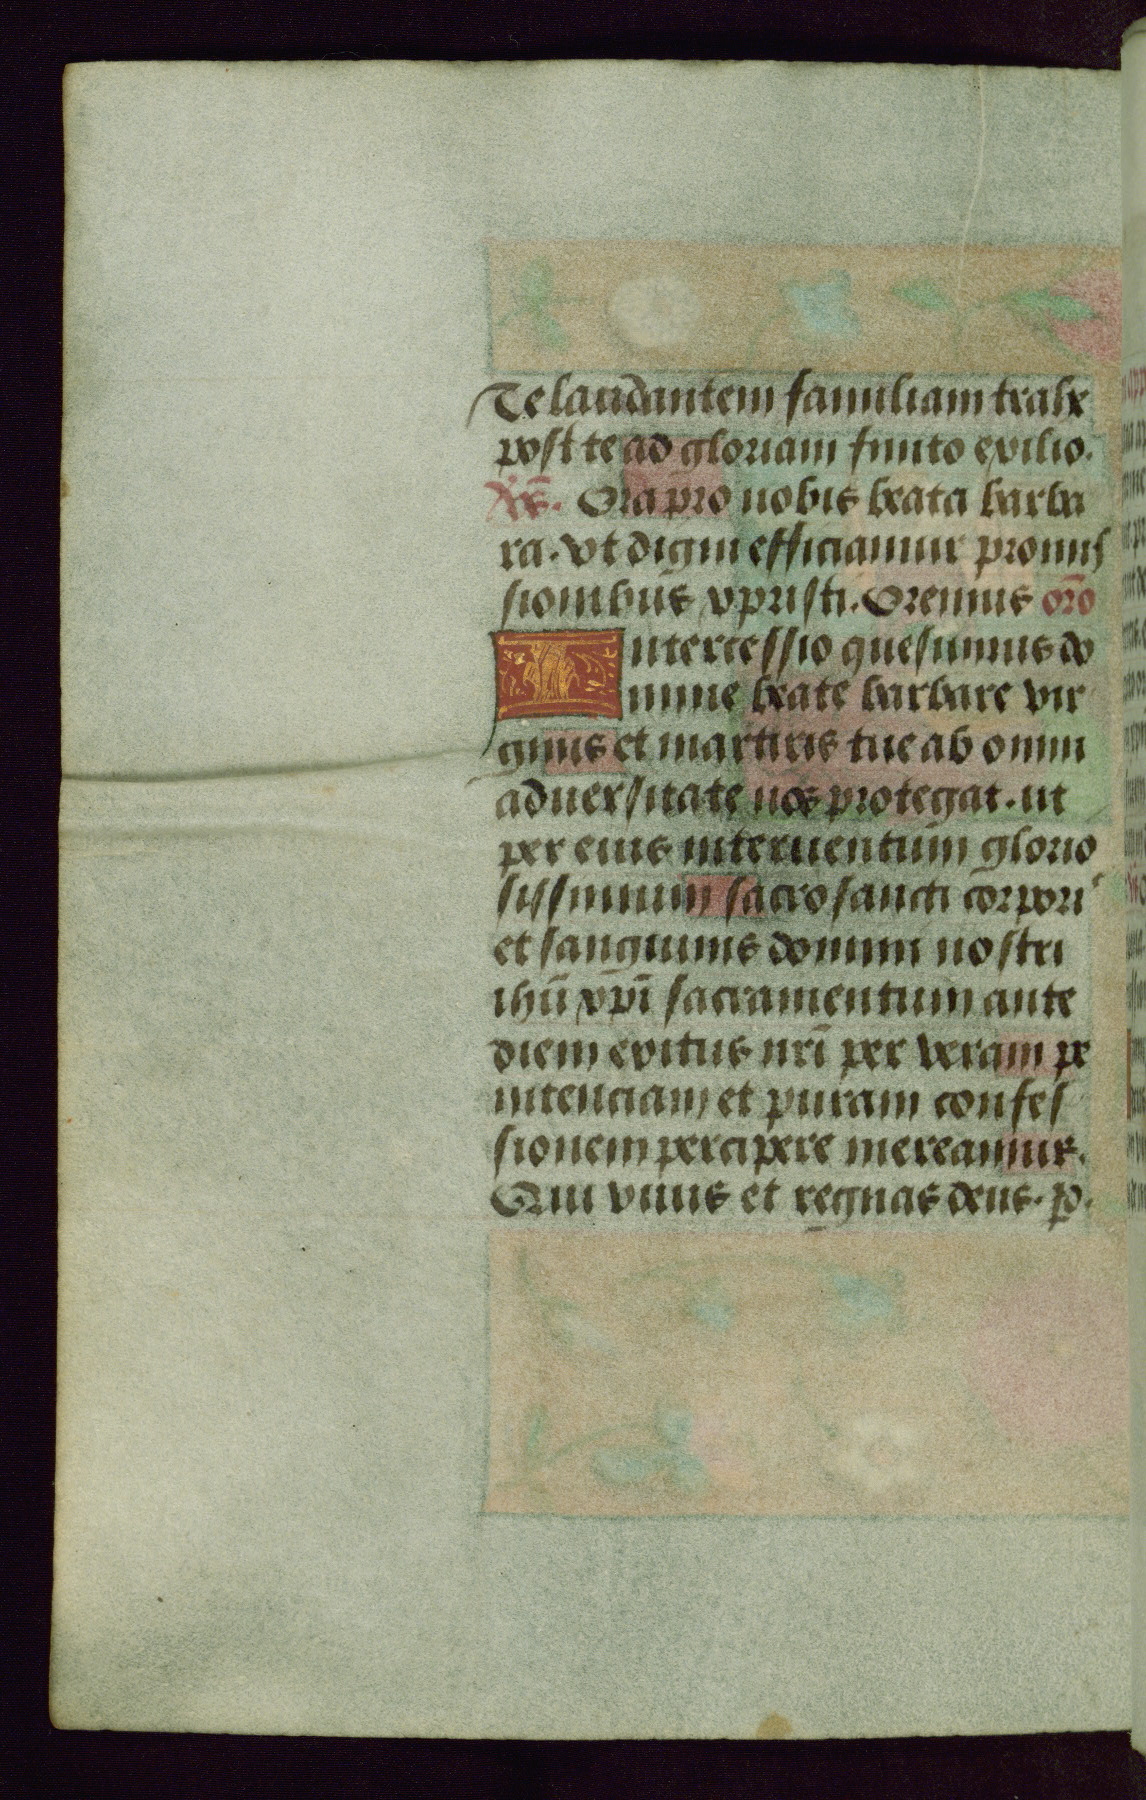 Te laudantem familiam trahe
post te ad gloriam finito exilio.
Ora pro nobis beata barba
ra. Vt digni efficiamur promis
sionibus xpristi. Oremus or̄o
Intercessio quesumus do
mine beate barbare vir
ginis et martiris tue ab omni
aduersitate nos protegat. ut
per eius interuentum glorio
sissimum sacrosancti corporis
et sanguinis domini nostri
ihū xpī sacramentum ante
diem exitus nr̄i per veram pe
nitenciam et puram confes
sionem percipere mereamur.
Qui viuis et regnas deus. p̄.